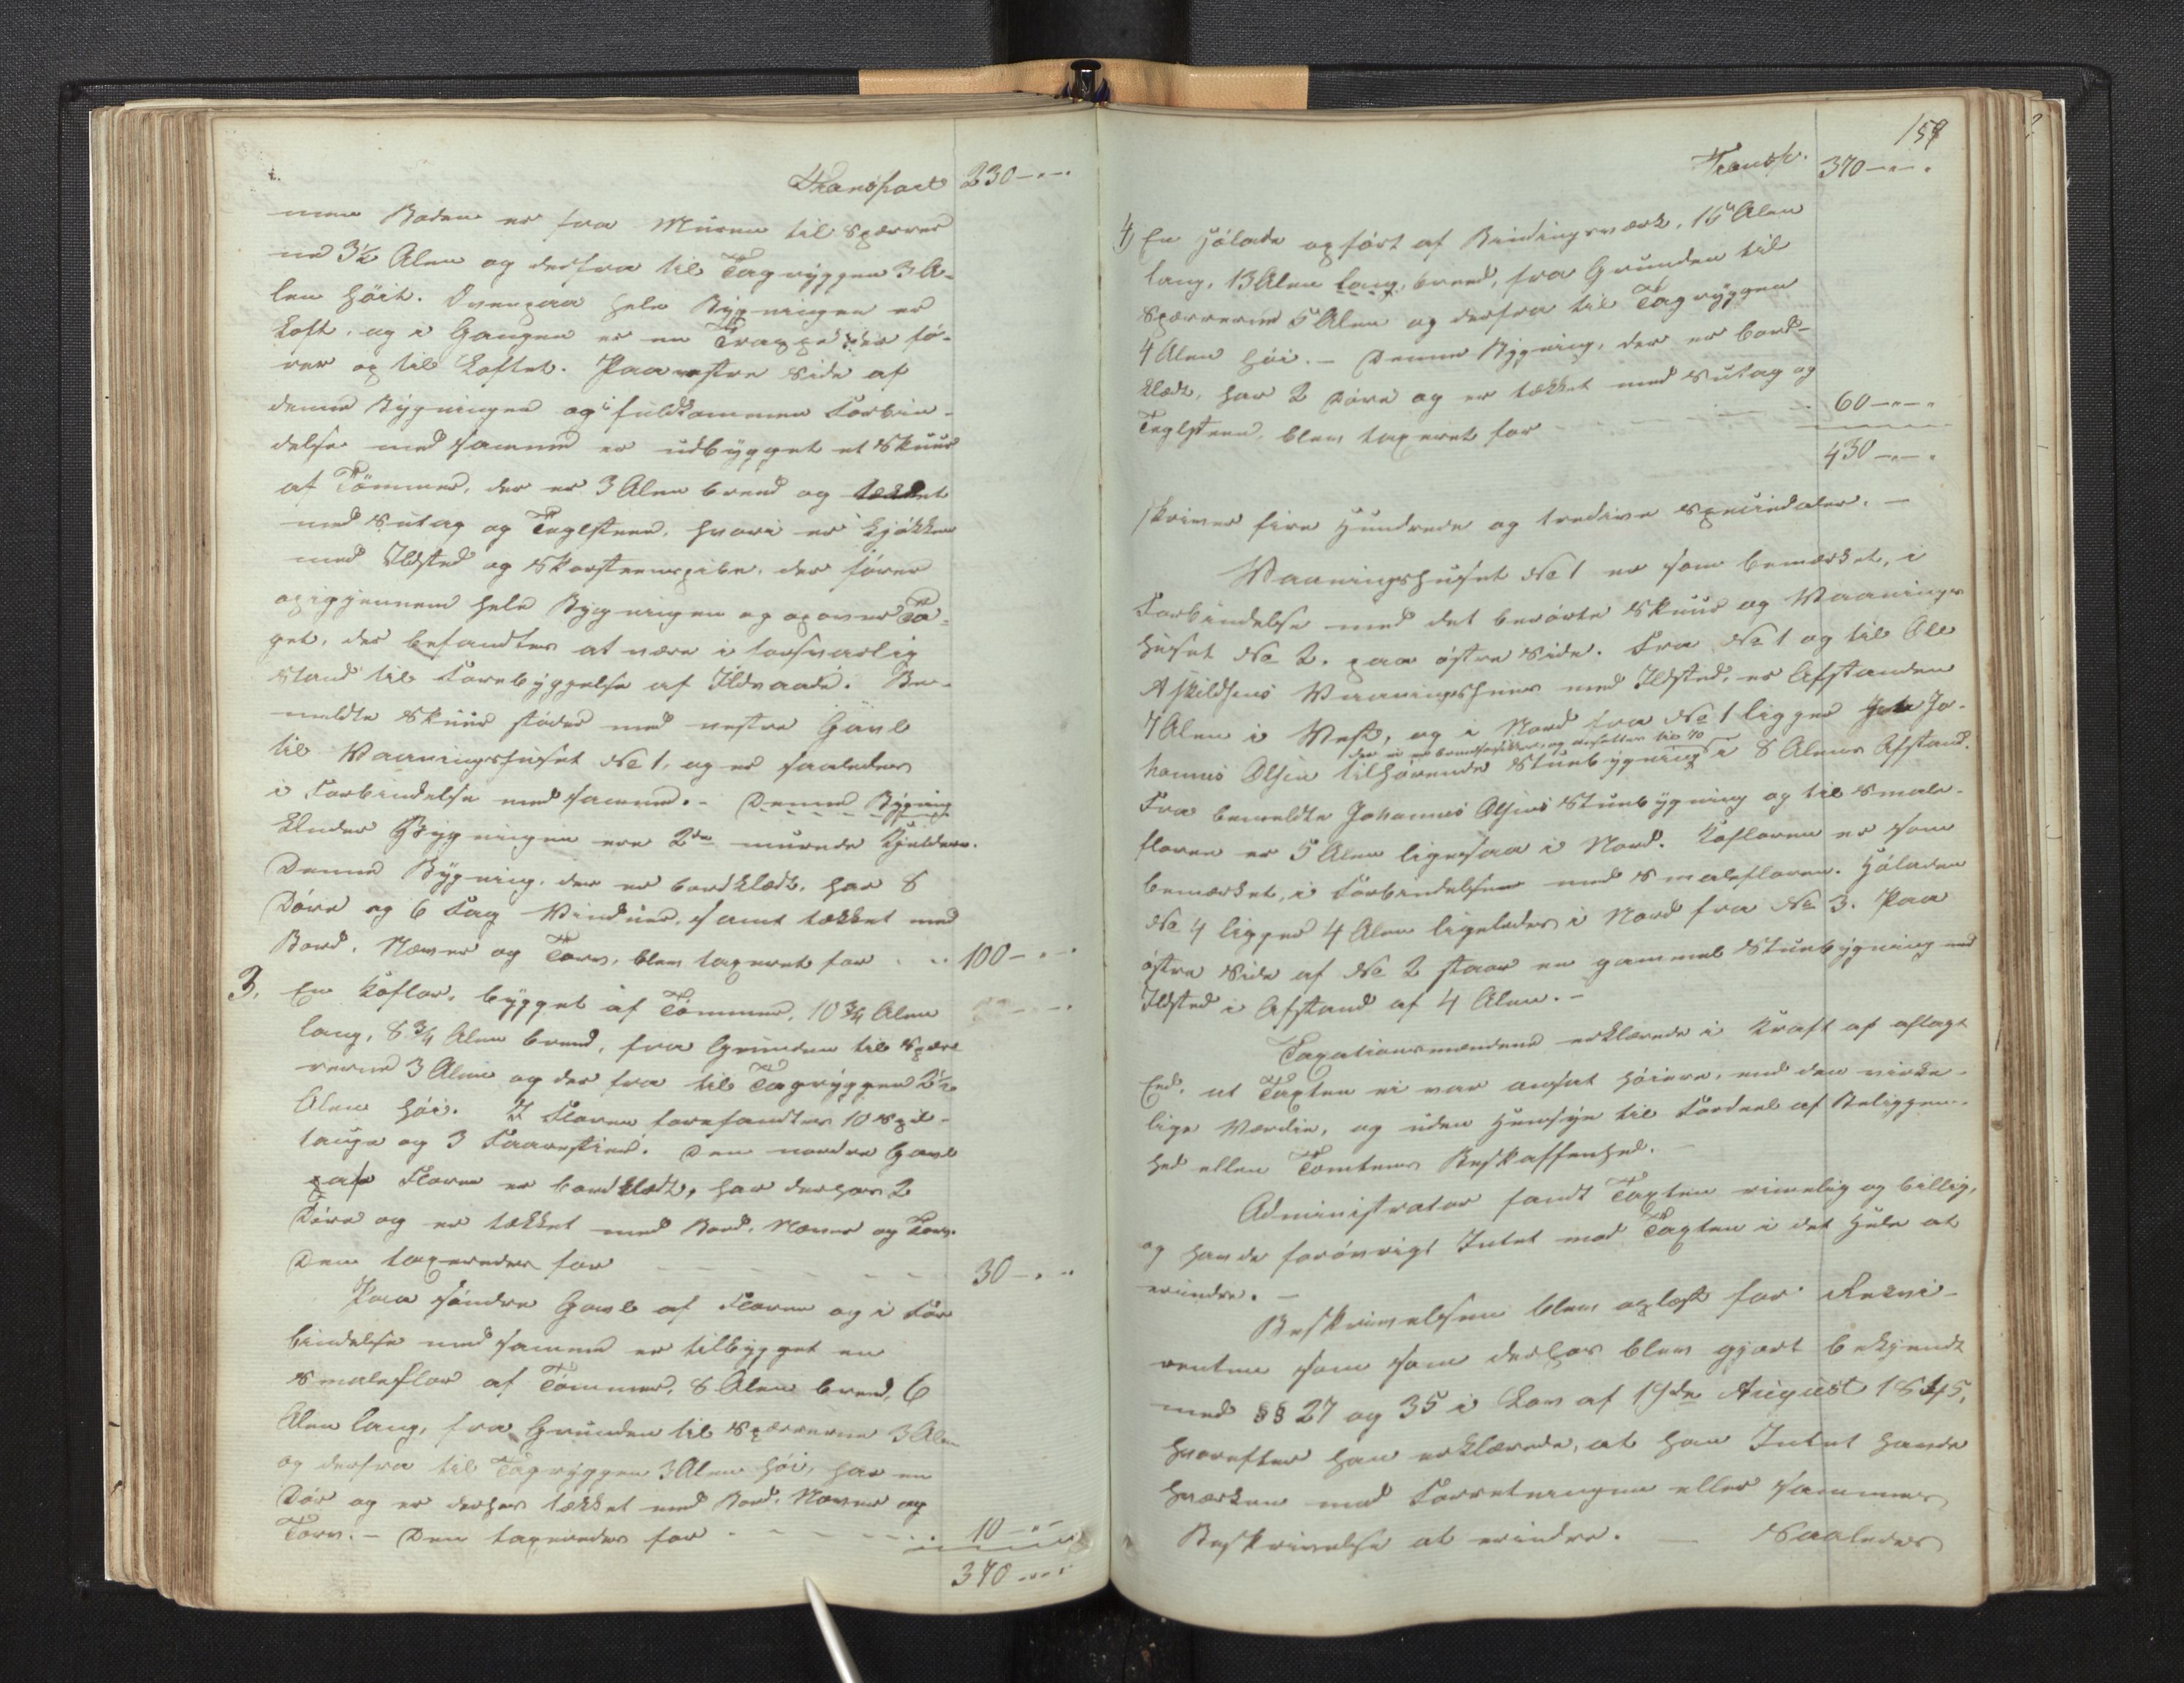 Transport 230 – " – "
men Boden er fra Muren til Spærrer
ne 3½ Alen og derfra til Tagryggen 3 A-
len høit. Ovenpaa hele Bygningen er
Loft, og i Gangen er en Trappe der fø-
rer op til Loftet. Paa vestre Side af
denne Bygningen og i fuldkommen Forbin-
delse med samme er udbygget et Skuur
af Tømmer, der er 3 Alen breed og tækket
med Sutag og Teglsteen, hvori er Kjøkken
med Ildsted og Skorsteenspibe, der fører
op igjennem hele Bygningen og op over Ta-
get, der befandtes at være i forsvarlig
Stand til Forebyggelse af Ildvaade. Be-
meldte Skuur støder med vestre Gavl
til Vaaningshuset No 1, og er saaledes
i Forbindelse med samme. – Denne Bygning
Under Bygningen ere 2de murede Kjeldere.
Denne Bygning, der er bordklædt, har 8
Døre og 6 Fag Vinduer, samt tækket med
Bord, Næver og Torv, blev taxeret for 100 – " – "
3, En Koflor, bygget af Tømmer, 10¾ Alen
lang, 8¾ Alen breed, fra Grunden til Spær-
rerne 3 Alen og derfra til Tagryggen 2½
Alen høi. I Floren forefandtes 10 Spil-
tauge og 3 Faarestier. Den nordre Gavl
paa Floren er bordklædt, har derhos 2
Døre og er tækket med Bord, Næver og Torv.
Den taxeredes for 30 – " – "
Paa søndre Gavl af Floren og i For
bindelse med samme er tilbygget en
Smaleflor af Tømmer, 8 Alen breed, 6
Alen lang, fra Grunden til Spærrerne 3 Alen
og derfra til Tagryggen 3 Alen høi, har en
Dør og er derhos tækket med Bord, Næver og
Torv. – Den taxeredes for 10 – " –
370 – " – "
159
Transp. 370 – " – "
4, En Hølade opført af Bindingsværk, 16 Alen
lang, 13 Alen lang, breed, fra Grunden til
Spærrerne 5 Alen og derfra til Tagryggen
4 Alen høi. – Denne Bygning, der er bord-
klædt, har 2 Døre og er tækket med Sutag og
Teglsteen, blev taxeret for 60 – " – "
430 – " – "
skriver fire Hundrede og tredive Speciedaler. –
Vaaningshuset No 1 er som bemærket, i
Forbindelse med det berørte Skuur og Vaanings
huset No 2, paa østre Side. Fra No 1 og til Ole
Askildsens Vaaningshuus med Ildsted, er Afstanden
7 Alen i Vest, og i Nord fra No 1 ligger Jo-
der ei er brandforsikkret, og ansættes til 70
hannes Olsen tilhørende Stuebygning i 8 Alens Afstand.
Fra bemeldte Johannes Olsens Stuebygning og til Smale-
floren er 5 Alen ligesaa i Nord. Kofloren er som
bemærket, i Forbindelse med Smalefloren. Høladen
No 4 ligger 4 Alen ligeledes i Nord fra No 3. Paa
østre Side af No 2 staar en gammel Stuebygning med
Ildsted i Afstand af 4 Alen. –
Taxationsmændene erklærede i Kraft af aflagt
Eed, at Taxten ei var ansat høiere, end den virke-
lige Værdie, og uden Hensyn til Fordeel af Beliggen-
hed eller Tomtens Beskaffenhed. –
Administrator fandt Taxten rimelig og billig,
og havde forøvrigt Intet mod Taxten i det Hele at
erindre. –
Beskrivelsen blev oplæst for Reqvi-
renten som som derhos blev gjort bekjendt
med §§ 27 og 35 i Lov af 19de August 1845,
hvorefter han erklærede, at han Intet havde
hverken mod Forretningen eller sammes
Beskrivelse at erindre. – Saaledes